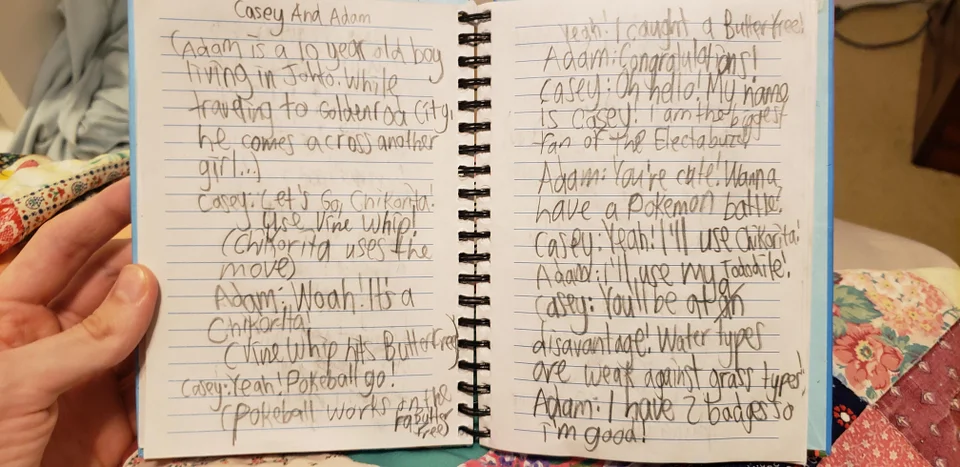 Casey And Adam
(Adam is a 10 year old boy
living in Johto. While
traveling to Goldenrod City,
he comes across another
girl...)
Casey: Let's Go, Chikorita!
Use Vine Whip!
(Chikorita uses the
move)
Adam: Woah! It's a
Chikorita!
(Vine Whip hits Butterfree)
Casey: Yeah! Pokeball go!
(Pokeball works on the
Butter
free)
Yeah! I caught a Butterfree!
Adam: Congratulations!
Casey: Oh hello! My name
is Casey! I am the biggest
fan of the Electabuzz!
Adam: You're cute! Wanna
have a Pokemon battle?
Casey: Yeah! I'll use Chikorita!
Adam: I'll use my Totodile!
Casey: You'll be at a
disavantage! Water types
are weak against grass types!
Adam: I have 2 badges so
i'm good!